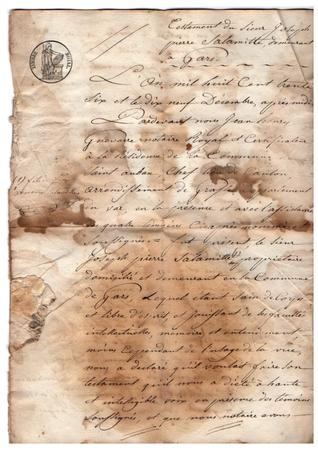 Testament du Sieur Joseph
pierre Salamitte demeurant
à Gars
L'an mil huit Cent trente
Six et le dix neuf Décembre, après midi
Pardevant nous Jean
notaire Royal et Certificateur
à la Résidence de la Commune
Saint auban Chef canton
arrondissement de département
du var, en la présence et avec l'assistance
quatre témoins Cy après nommés
Soussignés fut présent, le Sieur
Joseph pierre Salamitte propriétaire
domicilié et demeurant en la Commune
de Gars, Lequel étant Sain de Corps
et libre d'esprit et jouissant de facultés
intellectuelles, mémoire, et entendement
moins Cependant de l'usage de la vue,
nous a déclaré qu'il voulait faire son
testament qu'il nous a dicté à haute
et intelligible voix en présence des témoins
soussignés, et que nous notaire avons